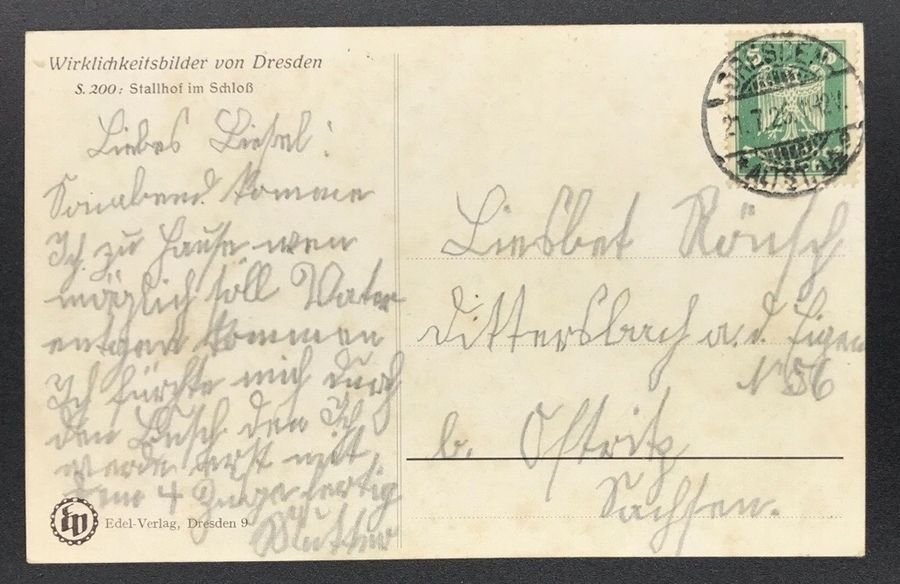 Wirklichkeitsbilder von Dresden
S. 200: Stallhof im Schloß
Liebes Liesel!
Sonabend komme
Ich zu Hause wen
möglich soll Vater
entgen kommen
Ich fürchte mich durch
den Busch den Ich
werde erst mit
dem 4 Zuge fertig
Mutter
Edel-Verlag, Dresden 9
5
DRESDEN
ALTST.
21.7.
Liesbet Rönsch
Dittersbach a. d. Eigen
No 56
b. Ostritz
Sachsen.